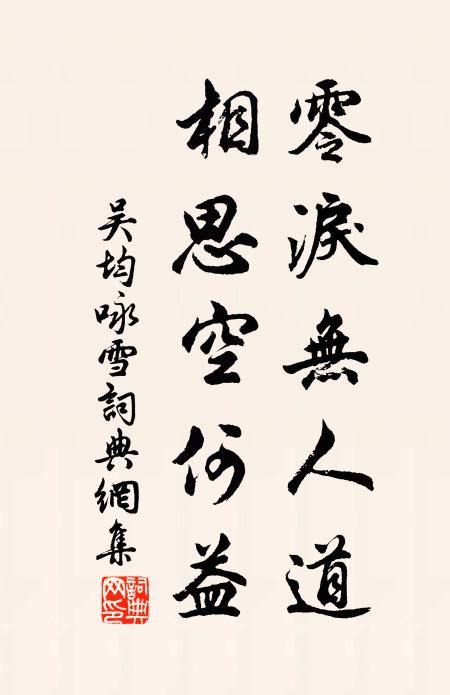 零淚無人道
相思空何益
吴均咏雪詞典網集
詞典
网印